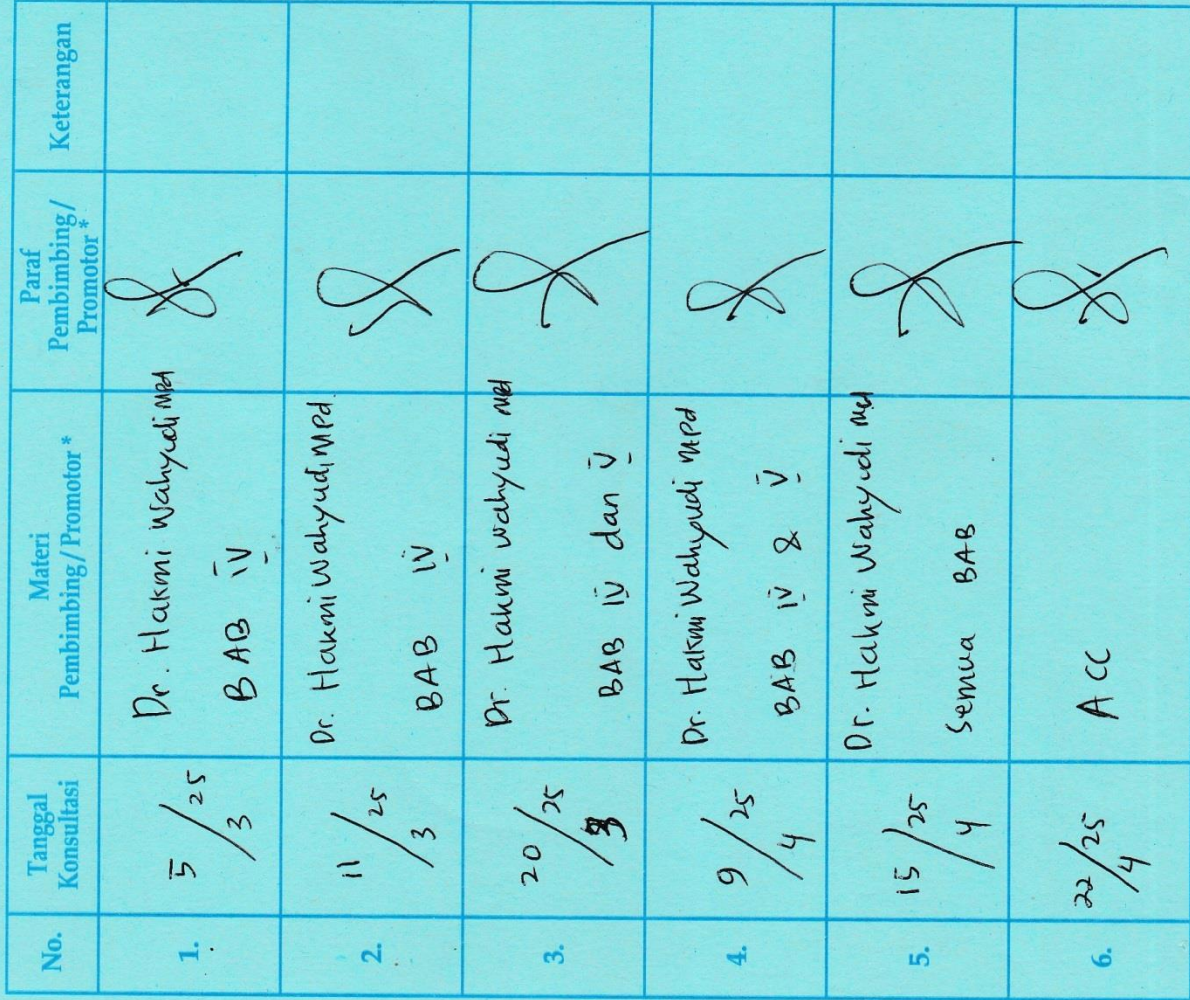 No.
Tanggal
Konsultasi
Materi
Pembimbing / Promotor *
Paraf
Pembimbing /
Promotor *
Keterangan
1.
5/3 25
Dr. Hakmi Wahyudi MPd
BAB IV
2.
11/3 25
Dr. Hakmi Wahyudi MPd.
BAB IV
3.
20/3 25
Dr. Hakmi Wahyudi MPd
BAB IV dan V
4.
9/4 25
Dr. Hakmi Wahyudi MPd
BAB IV & V
5.
15/4 25
Dr. Hakmi Wahyudi MPd
Semua BAB
6.
22/4 25
ACC